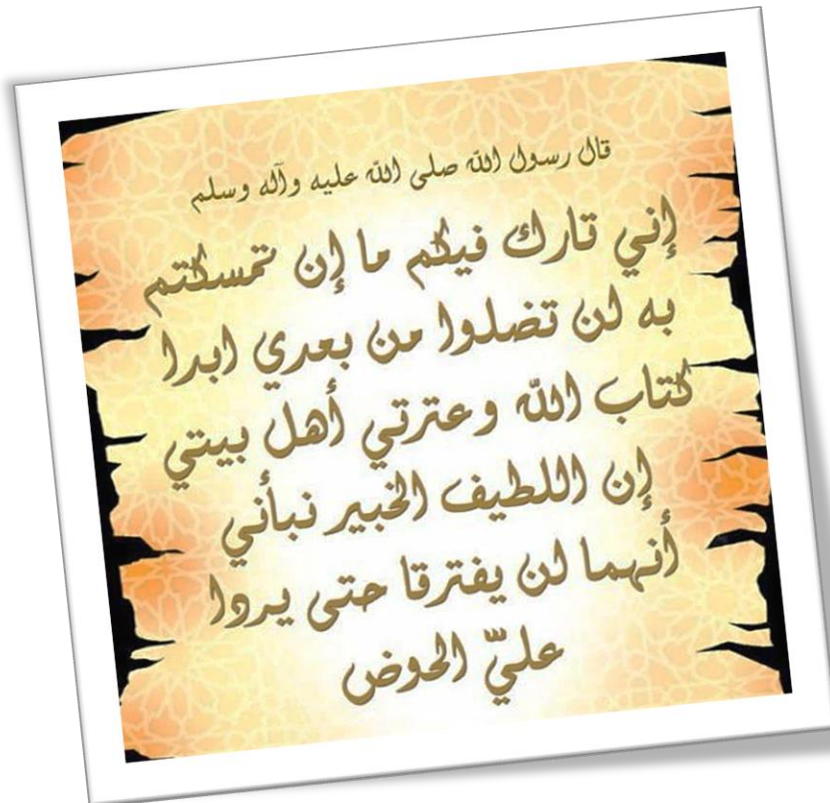 قال رسول الله صلى الله عليه وآله وسلم
إني تارك فيكم ما إن تمسكتم
به لن تضلوا من بعدي ابدا
كتاب الله وعترتي أهل بيتي
إن اللطيف الخبير نبأني
أنهما لن يفترقا حتى يردا
عليّ الحوض